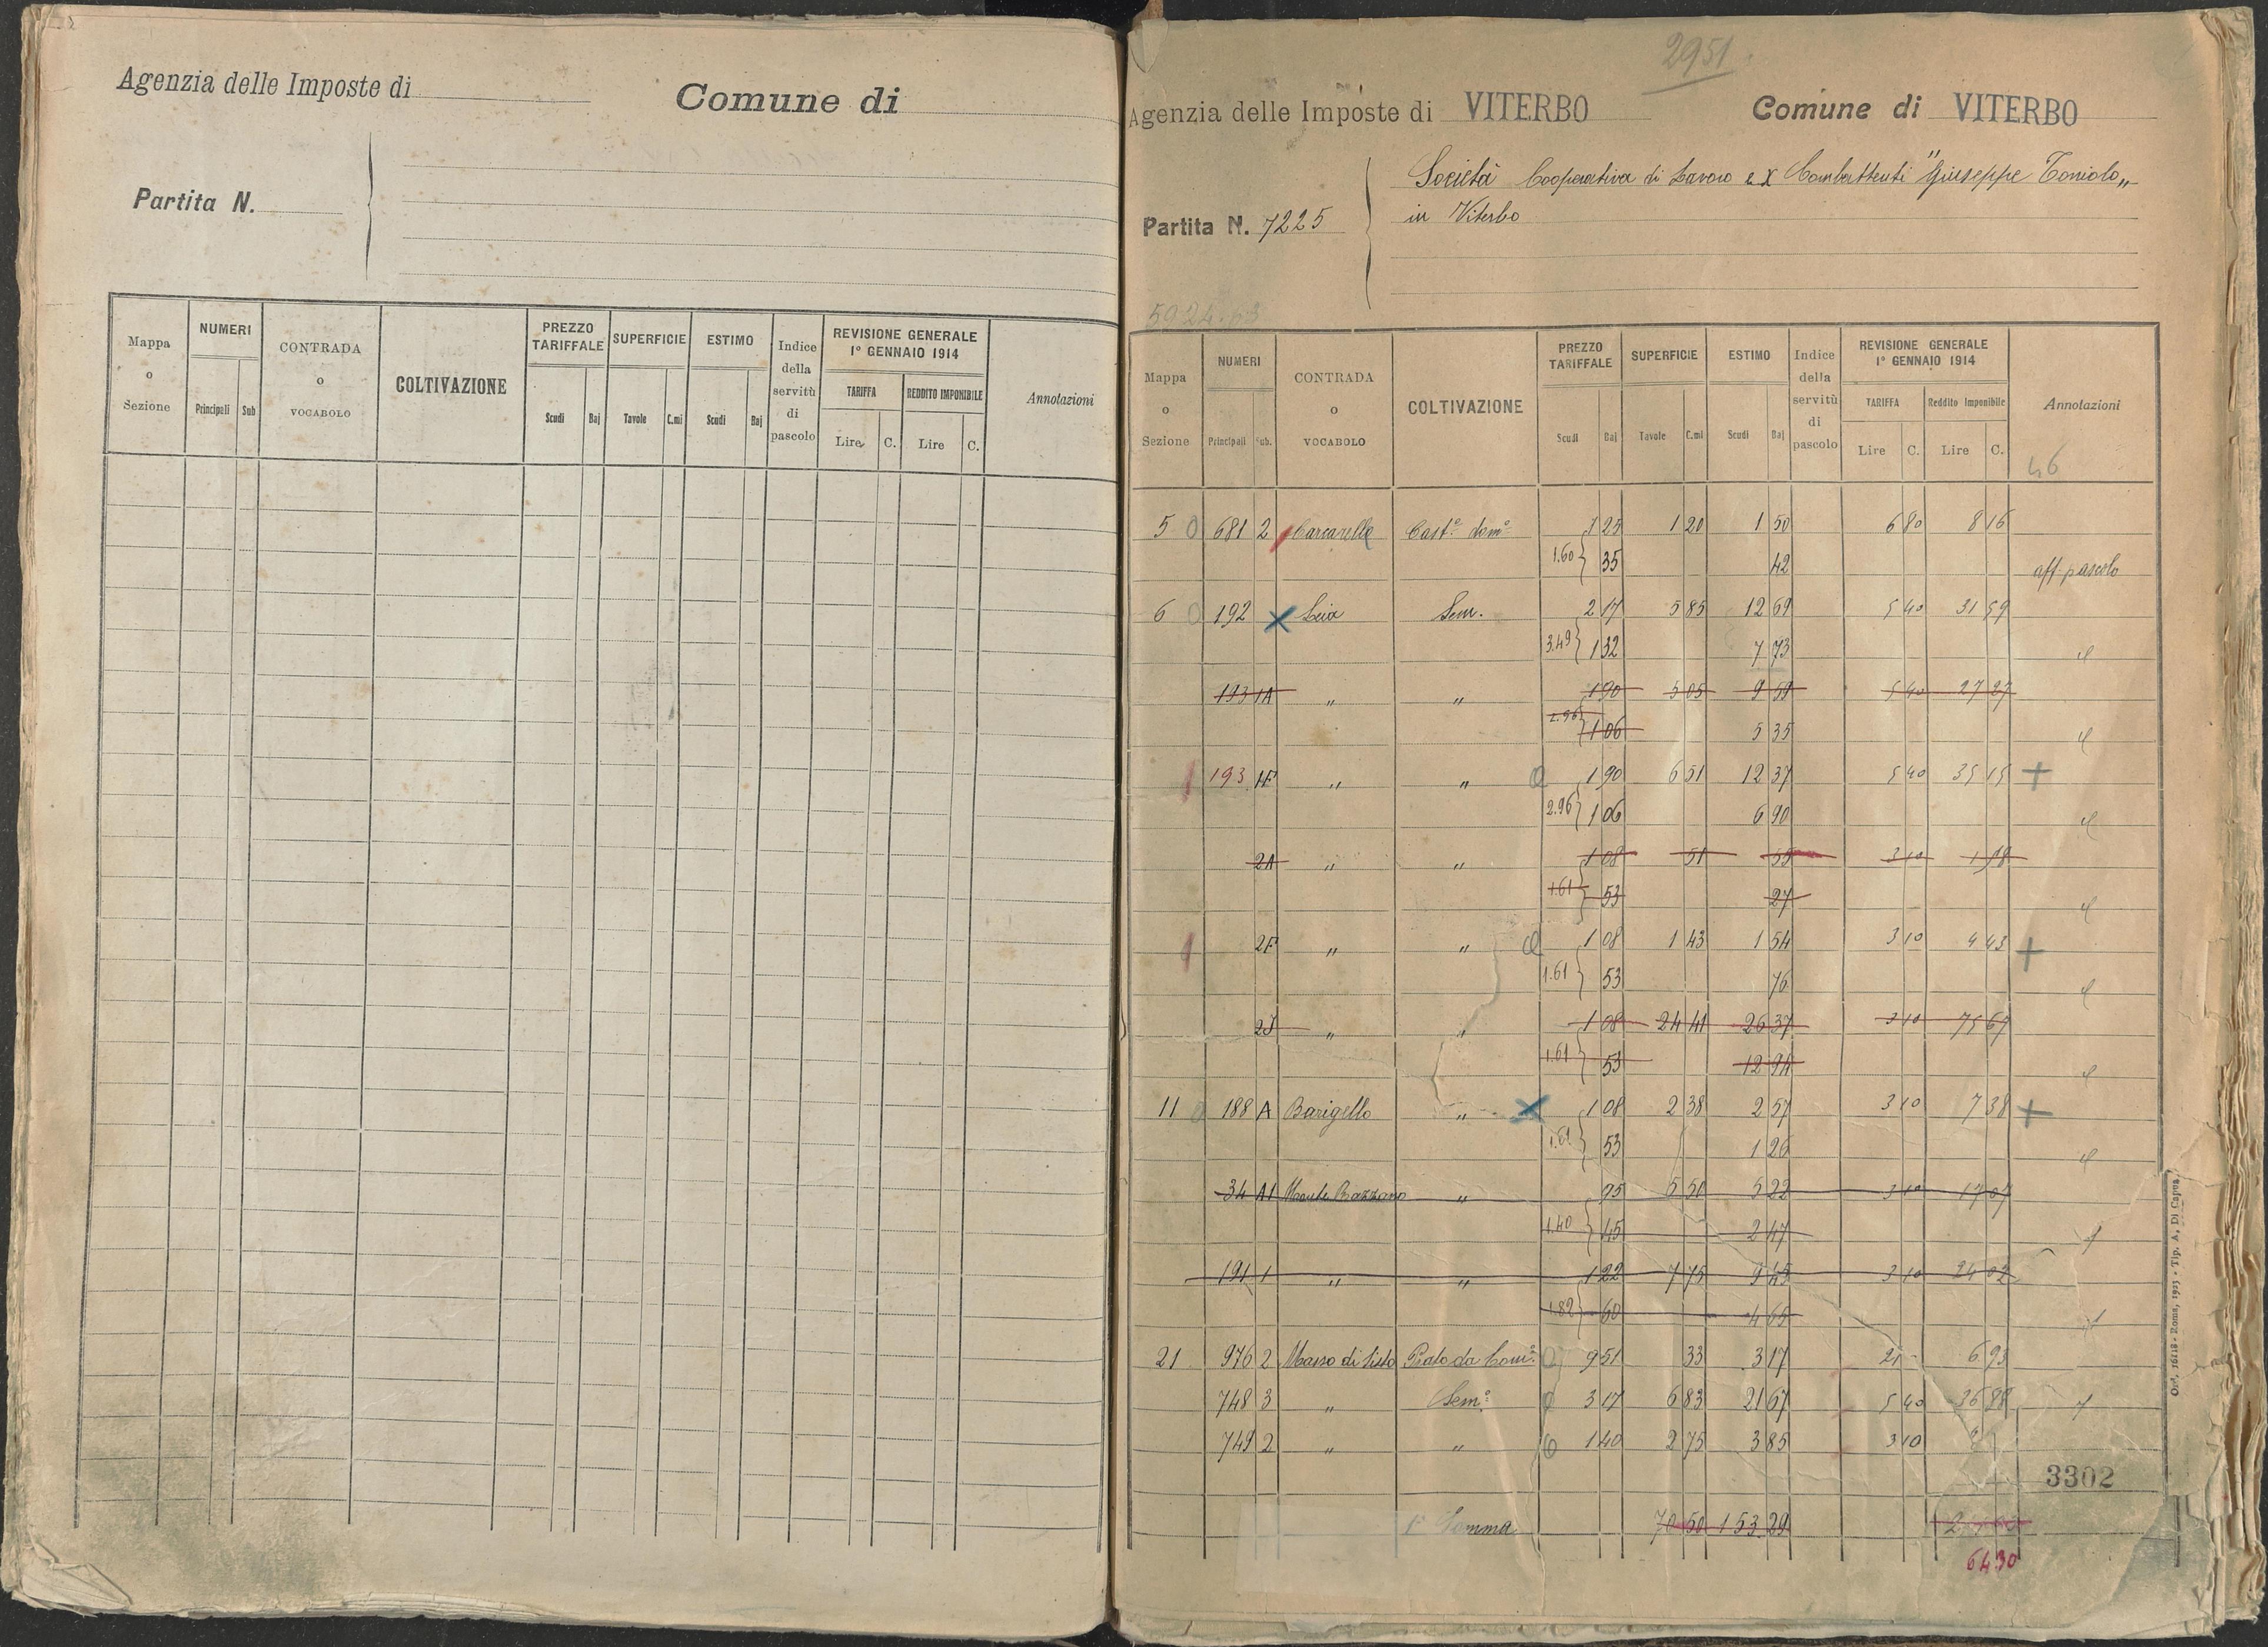 Agenzia delle Imposte di
Comune di
Partita N.
Mappa o Sezione
NUMERI
Principali Sub
CONTRADA o VOCABOLO
COLTIVAZIONE
PREZZO TARIFFALE
Scudi Baj
SUPERFICIE
Tavole C.mi
ESTIMO
Scudi Baj
Indice della servitù di pascolo
REVISIONE GENERALE 1º GENNAIO 1914
TARIFFA
Lire C.
REDDITO IMPONIBILE
Lire C.
Annotazioni
2951
Agenzia delle Imposte di VITERBO
Comune di VITERBO
Partita N. 7225
Società Cooperativa di Lavoro ex Combattenti "Giuseppe Toniolo„
in Viterbo
Mappa o Sezione
NUMERI
Principali Sub.
CONTRADA o VOCABOLO
COLTIVAZIONE
PREZZO TARIFFALE
Scudi Baj
SUPERFICIE
Tavole C.mi
ESTIMO
Scudi Baj
Indice della servitù di pascolo
REVISIONE GENERALE 1º GENNAIO 1914
TARIFFA
Lire C.
Reddito Imponibile
Lire C.
Annotazioni
46
5 0 681 2 Carcarelle Castº domº 1 25 1 20 1 50 6 80 8 16
1.60 35 42 aff pascolo
6 0 192 Leia Sem. 2 17 5 85 12 69 5 40 31 59
3.49 1 32 7 73 "
193 1A " " 1 90 5 05 9 59 5 40 27 27
2.96 1 06 5 35 "
193 1F " " 1 90 6 51 12 37 5 40 35 15 +
2.96 1 06 6 90 "
2A " " 1 08 51 55 3 10 1 58
1.61 53 27 "
2F " " 1 08 1 43 1 54 3 10 4 43 +
1.61 53 76 "
2I " " 1 08 24 41 26 37 3 10 75 67
1.61 53 12 94 "
11 0 188 A Barigello " 1 08 2 38 2 57 3 10 7 38 +
1.61 53 1 26 "
34 A1 Monte Bazzano " 95 5 50 5 22 3 10 17 07
1.40 45 2 47 "
191 1 " " 1 22 7 75 9 45 3 10 24 02
1.82 60 4 65 "
21 976 2 Masso di Sisto Prato da Comº 9 51 33 3 17 21 - 6 93
748 3 " Semº 3 17 6 83 21 67 5 40 36 88
749 2 " " 1 40 2 75 3 85 3 10
3302
1ª Somma 70 50 153 29
64 30
Ord. 16118 - Roma, 1923 - Tip. A. Di Capua.